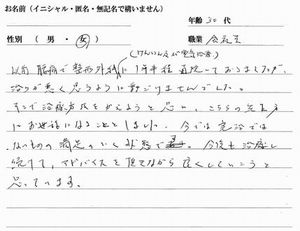 お名前（イニシャル・匿名・無記名で構いません）
年齢 30 代
性別（ 男 ・ 女 ） 職業 会社員
以前 腰痛で整形外科に1年半程通院しておりましたが、
治りが悪く思うように動けませんでした。
そこで治療方法をかえようと思い、こちらの先生方
にお世話になることとしました。今では完治では
ないものの満足のいく状態です。今後も治療し
続けて、アドバイスを頂きながら良くしていこうと
思っています。